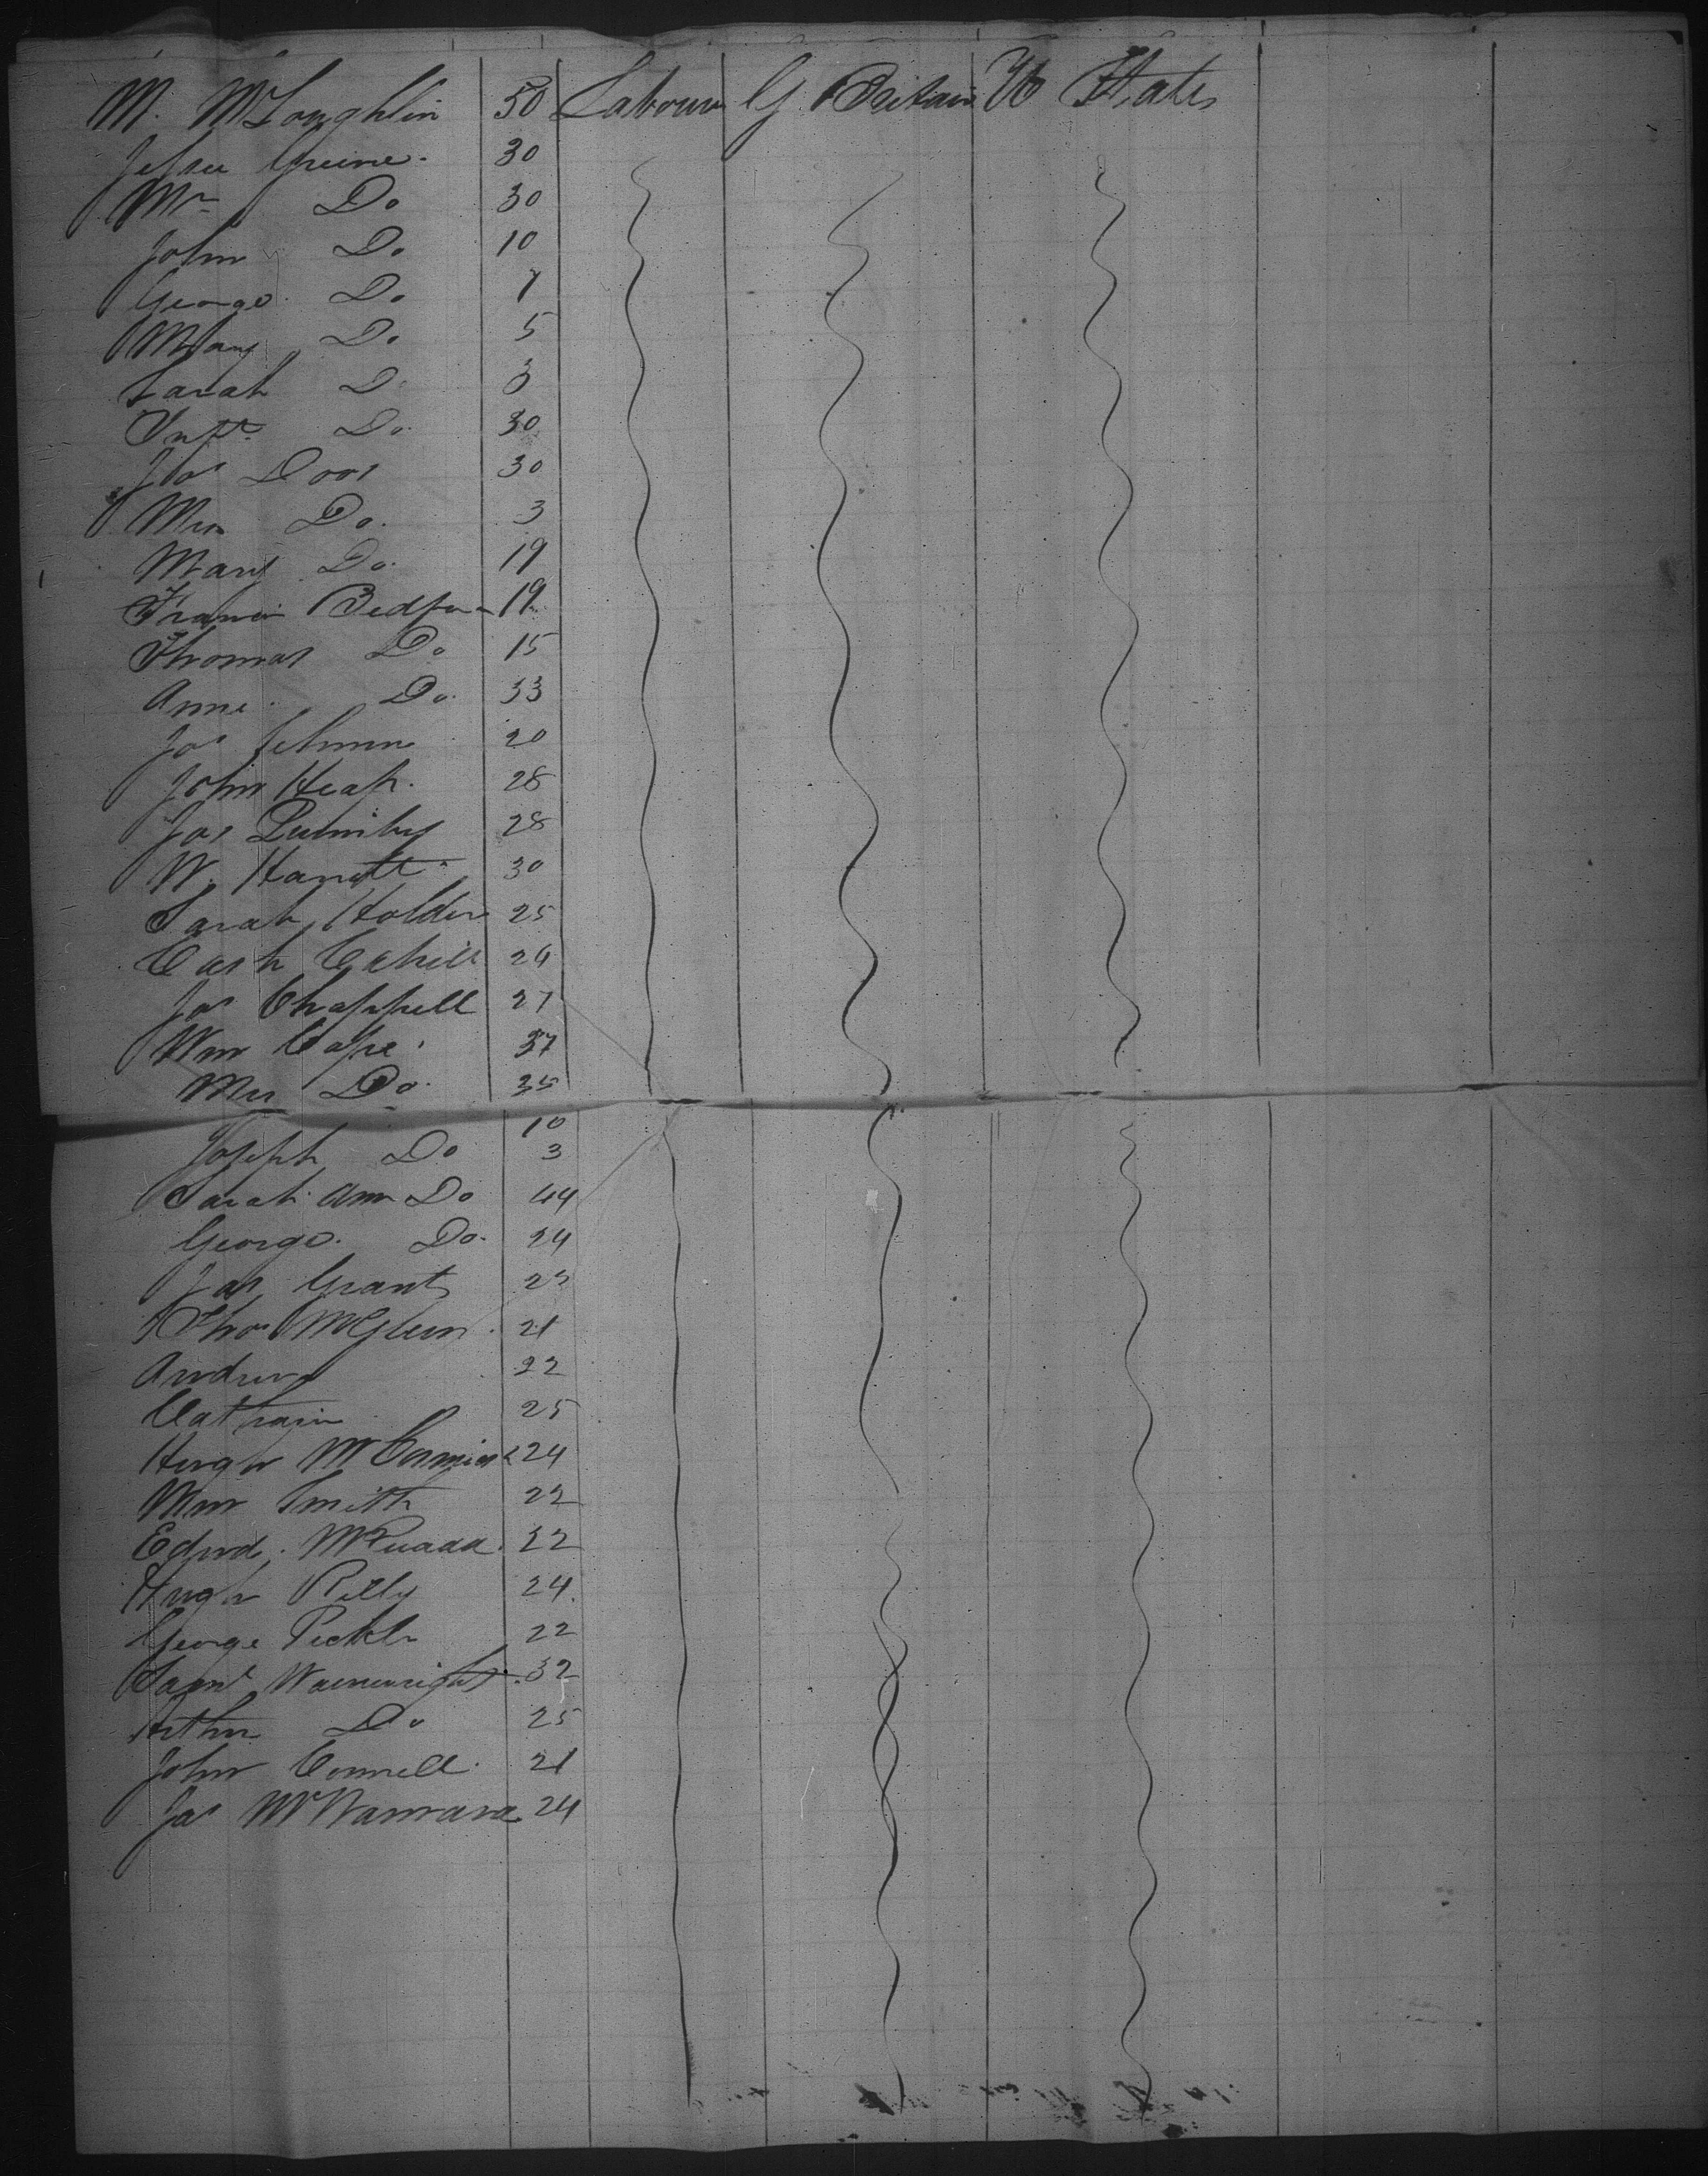 M. McLoughlin 50 Labour G Britain U States
Jessee Greene 30
Mrs Do 30
John Do 10
George Do 7
Mary Do 5
Sarah D 3
Inft Do 30
Jos 30
Mrs Do. 3
Mary Do. 19
Francis 19
Thomas Do 15
Anne Do. 33
Jos 20
John Heap. 28
Jos 28
W. 30
Sarah Holder 25
Cahill 24
Jos Chappell 27
Wm Cope 37
Mrs Do. 35
10
Joseph Do 3
Sarah Ann Do 44
George. Do. 24
Jas Grant 23
Thos McGlein 21
Andrew 22
Cathrain 25
Hugh McCormick 24
Wm Smith 22
Edwd. 22
Hugh Rilly 24
George 22
Saml Wainwright 32
Arthur Do 25
John Connell 21
Jas McNamara 24